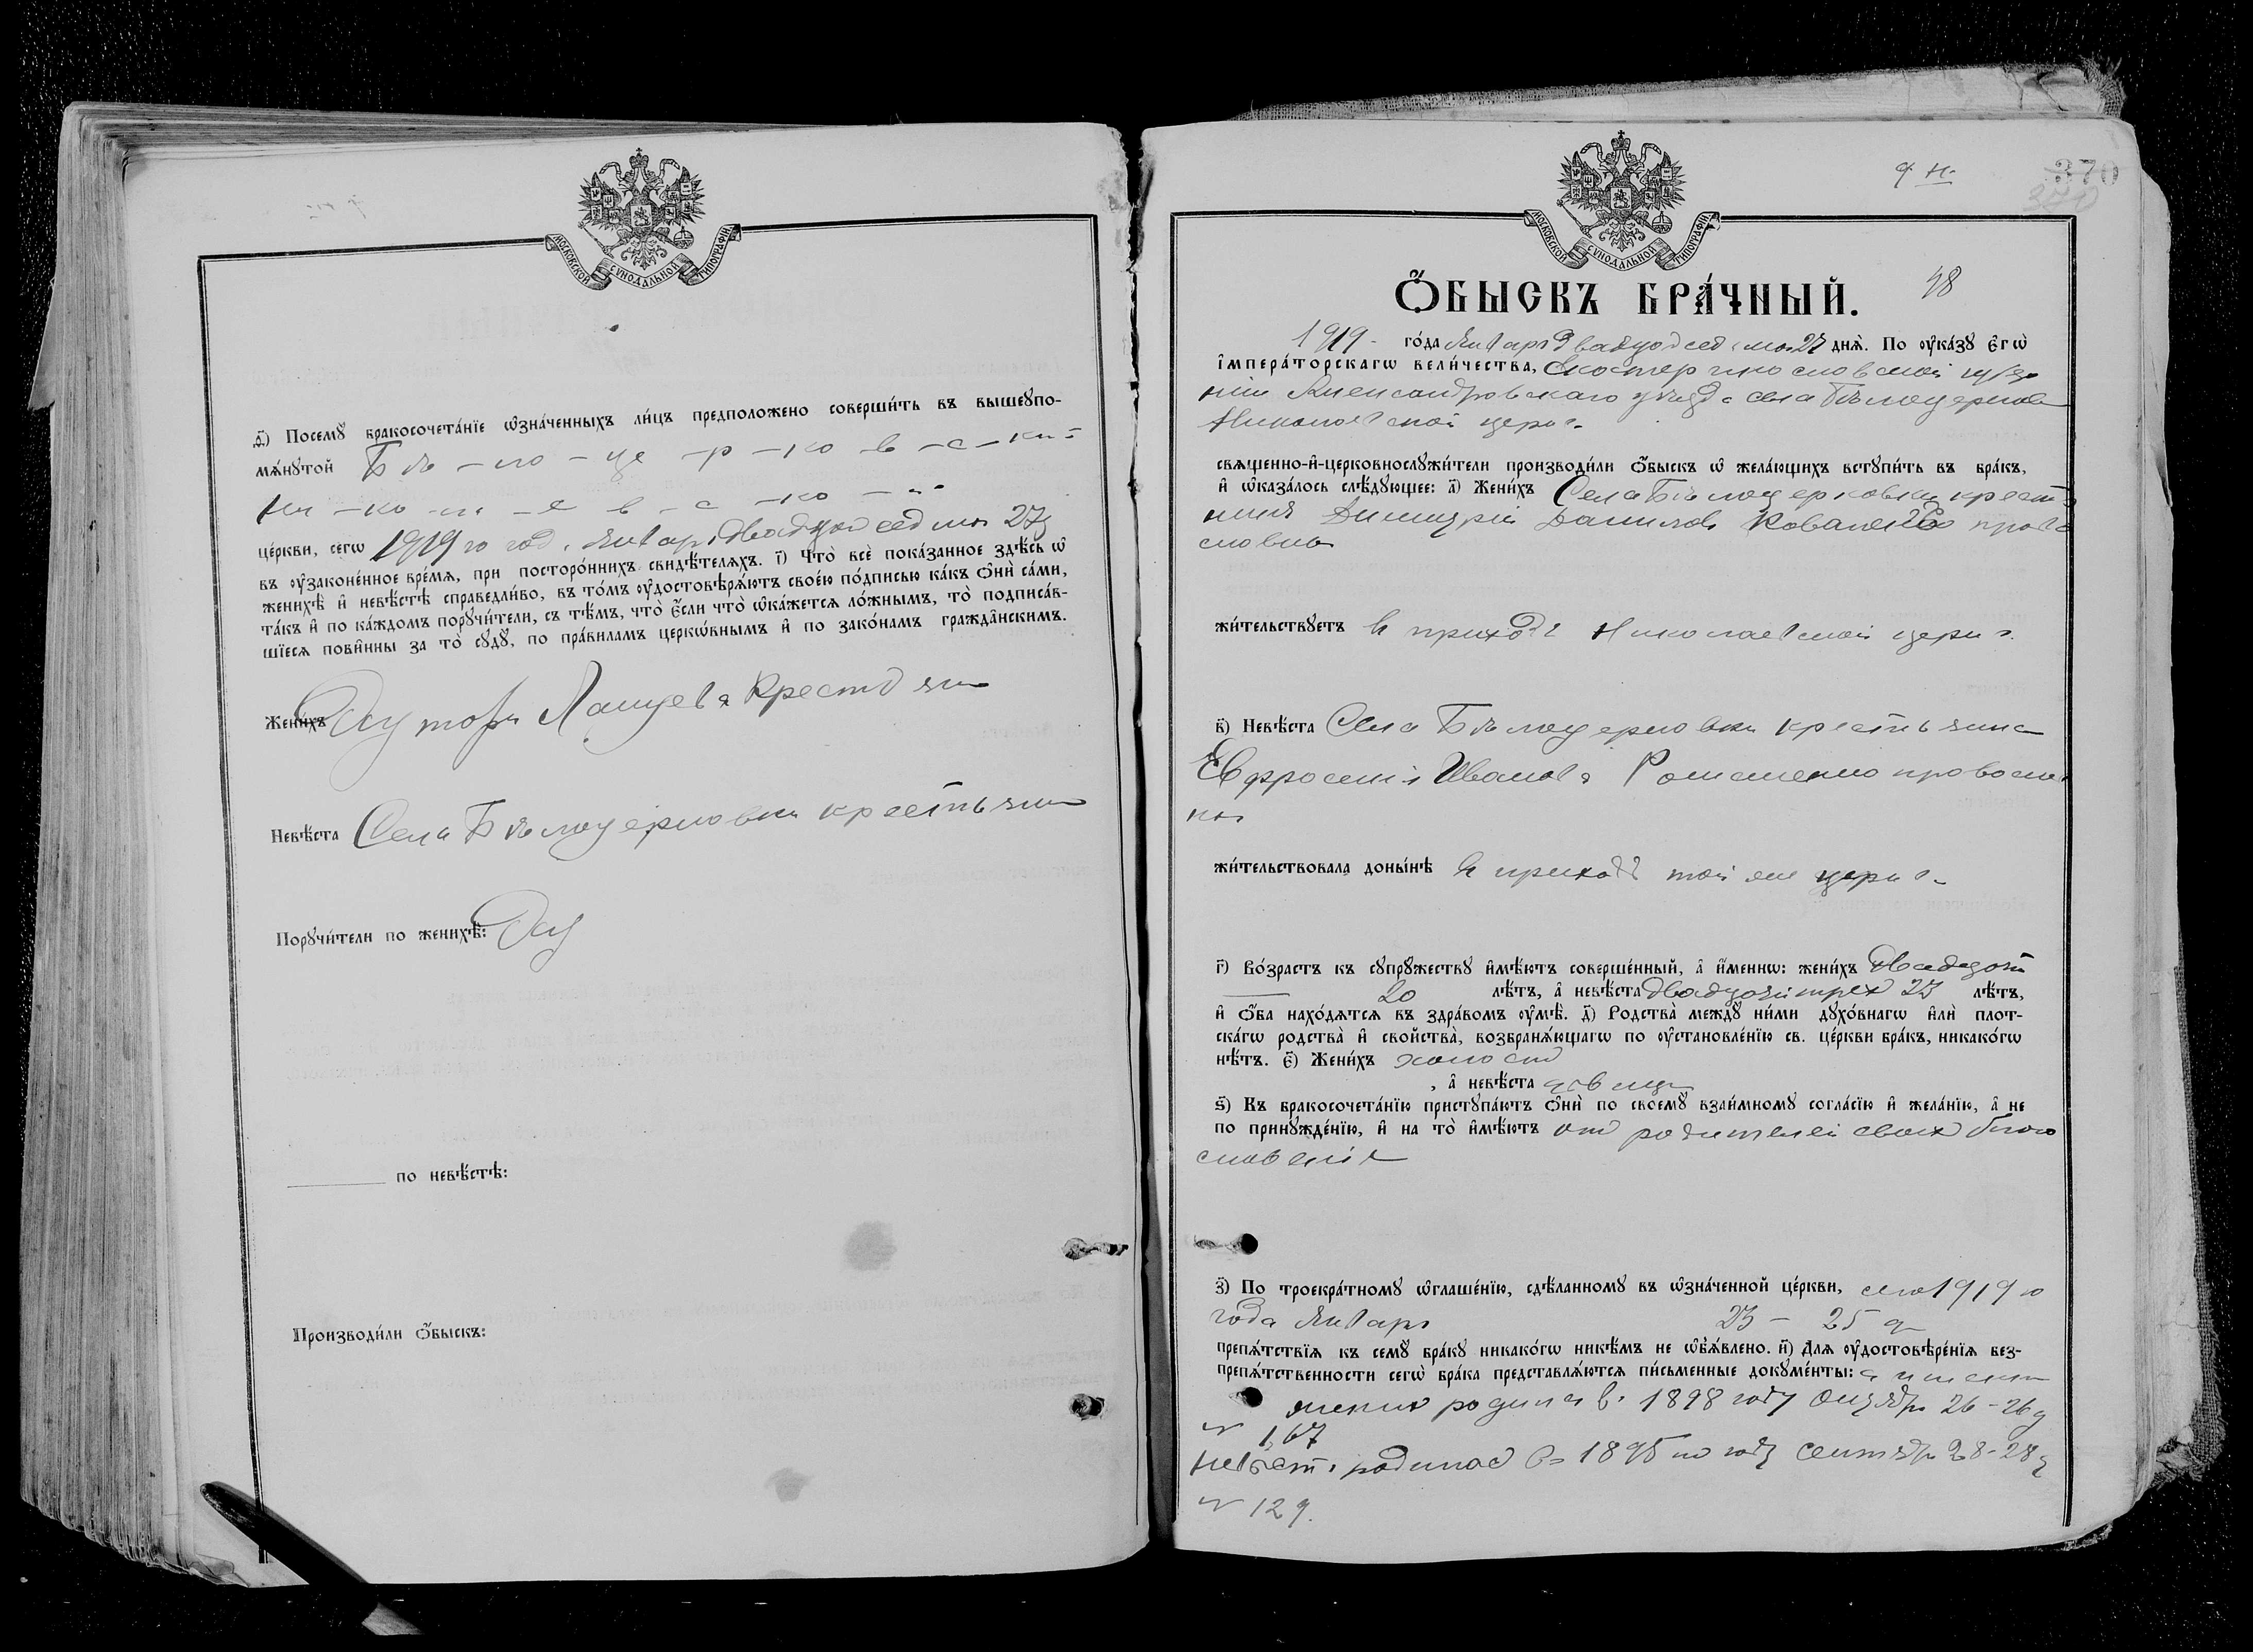 МОСКОВСКОЙ СѴНОДАЛЬНОЙ ТИПОГРАФІИ
д҃) Посемꙋ бракосочета́нїе ѡ҆зна́ченныхъ ли́цъ предположено соверши́ть въ вышеꙋпо-
мѧ́нꙋтой Бѣ – ло – це – р – ко – в – с – кой
Ни – ко – л – а – е – в – с – ко – й
це́ркви, сегѡ 1919 го год. Января двадцать седьмого 27 д
въ ᲂу҆законе́нное вре́мѧ, при посторо́ннихъ свидѣ́телѧхъ. і҃) Что̀ всѐ пока́занное здѣ́сь ѡ҆
женихѣ̀ и҆ невѣ́стѣ справедли́во, въ то́мъ ᲂу҆достовѣрѧ́ютъ свое́ю по́дписью ка́къ ѻ҆нѝ са́ми,
та́къ и҆ по ка́ждомъ порꙋчи́тели, съ тѣ́мъ, что̀ є҆́сли что̀ ѡ҆ка́жетсѧ ло́жнымъ, то̀ подписа́в-
шїесѧ пови́нны за то̀ сꙋдꙋ̀, по пра́виламъ церкѡ́внымъ и҆ по зако́намъ гражда̑нскимъ.
Жени́хъ
Невѣ́ста Села Бѣлоцерковки крестьян
Порꙋчи́тели по женихѣ̀:
по невѣ́стѣ:
Производи́ли ѻ҆́быскъ:
МОСКОВСКОЙ СѴНОДАЛЬНОЙ ТИПОГРАФІИ
370
370
Ѻ҆́БЫСКЪ БРА́ЧНЫЙ.
48
1919 го́да Января двадцать седьмо 27 днѧ̀. По ᲂу҆ка́зꙋ є҆гѡ̀
і҆мпера́торскагѡ вели́чества, Екатеринославской губер
ніи Александровскаго уѣзда села Бѣлоцерковки
Николаевской церкв
свѧще́нно-и҆-церковнослꙋжи́тели производи́ли ѻ҆́быскъ ѡ҆ жела́ющихъ встꙋпи́ть въ бра́къ,
и҆ ѡ҆каза́лось слѣ́дꙋющее: а҃) Жени́хъ Села Бѣлоцерковки крестья
нинъ Димитрій Данилов Коваленко право
славно
жи́тельствꙋетъ въ приходѣ Николаевской церкв
в҃) Невѣ́ста Села Бѣлоцерковки крестьянка
Евфросинія Иванова Романенко православ
но
жи́тельствовала доны́нѣ въ приходѣ той же церкв
г҃) Во́зрастъ къ сꙋпрꙋ́жествꙋ и҆мѣ́ютъ соверше́нный, а҆ и҆́меннѡ: жени́хъ двадцать
20 лѣ́тъ, а҆ невѣ́ста двадцати трех 23 лѣ́тъ,
и҆ ѻ҆́ба нахо́дѧтсѧ въ здра́вомъ ᲂу҆мѣ̀. д҃) Родства̀ междꙋ̀ ни́ми дꙋхо́внагѡ и҆лѝ плот-
ска́гѡ родства̀ и҆ свойства̀, возбранѧ́ющагѡ по ᲂу҆становле́нїю св. це́ркви бра́къ, никако́гѡ
нѣ́тъ. є҃) Жени́хъ холост
, а҆ невѣ́ста девица
ѕ҃) Къ бракосочета́нїю пристꙋпа́ютъ ѻ҆нѝ по своемꙋ̀ взаи́мномꙋ согла́сїю и҆ жела́нїю, а҆ не
по принꙋжде́нїю, и҆ на то̀ и҆мѣ́ютъ от родителей своих благо
словенія
з҃) По троекра́тномꙋ ѡ҆глаше́нїю, сдѣ́ланномꙋ въ ѡ҆зна́ченной це́ркви, сего 1919 го
года Января 23 – 25 д
препѧ́тствїѧ къ семꙋ̀ бра́кꙋ никако́гѡ никѣ́мъ не ѡ҆б̾ѧ́влено. и҃) Длѧ ᲂу҆достовѣре́нїѧ без-
препѧ́тственности сегѡ̀ бра́ка представлѧ́ютсѧ пи́сьменные докꙋме́нты:
жених родился в 1898 году Октябр 26 – 26 д
№ 167
Невѣста родилас в 1895 го году Сентябр 28 – 28 д
№ 129.